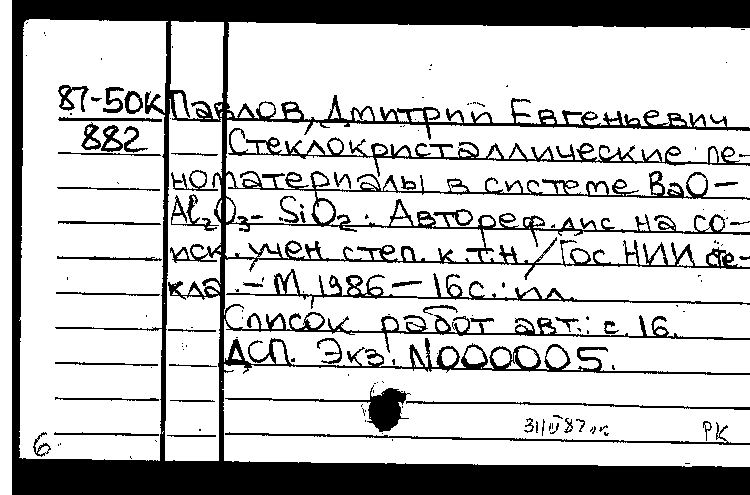 87-50К Павлов, Дмитрий Евгеньевич
882 Стеклокристаллические пе-
номатериалы в системе BaO-
Al₂O₃- SiO₂ : Автореф. дис на со-
иск. учен степ. к.т.н. / Гос НИИ сте-
кла .- М., 1986.- 16с.: ил.
Список работ авт.: с. 16.
ДСП. Экз. N000005.
РК
6